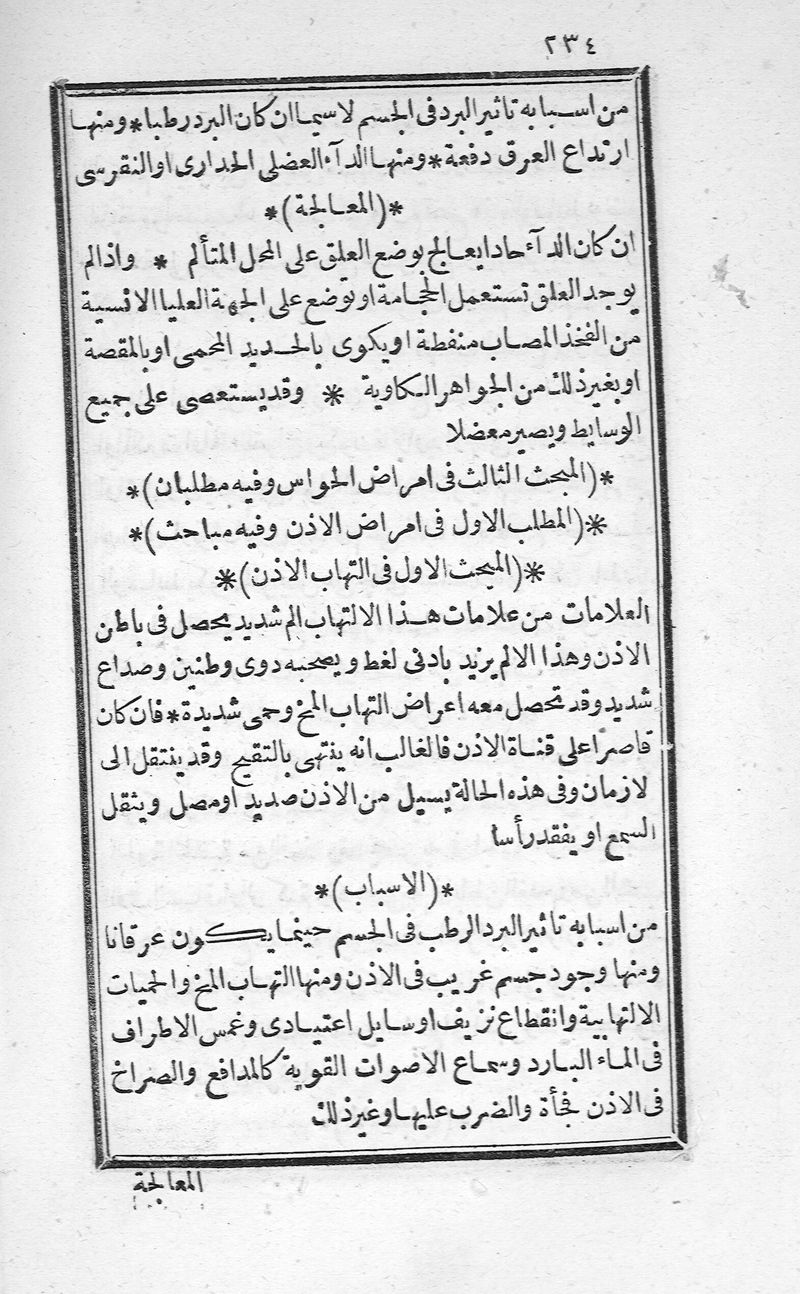 ٢٣٤
من اسبابه تاثير البرد فى الجسم لاسيما ان كان البرد رطبا * ومنها
ارتداع العرق دفعة * ومنها الدآء العضلى الحدارى او النقرسى
* (المعالجة) *
ان كان الدآء حادا يعالج بوضع العلق على المحل المتألم * واذا لم
يوجد العلق تستعمل الحجامة او توضع على الجهة العليا الانسية
من الفخذ المصاب منفطة او يكوى بالحديد المحمى او بالمقصة
او بغير ذلك من الجواهر الكاوية * وقد يستعصى على جميع
الوسايط ويصير معضلا
* (المبحث الثالث فى امراض الحواس وفيه مطلبان) *
* (المطلب الاول فى امراض الاذن وفيه مباحث) *
* (المبحث الاول فى التهاب الاذن) *
العلامات من علامات هذا الالتهاب الم شديد يحصل فى باطن
الاذن وهذا الالم يزيد بادنى لغط ويصحبه دوى وطنين وصداع
شديد وقد تحصل معه اعراض التهاب المخ وحمى شديدة * فان كان
قاصرا على قناة الاذن فالغالب انه ينتهى بالتقيح وقد ينتقل الى
لازمان وفى هذه الحالة يسيل من الاذن صديد او مصل ويثقل
السمع او يفقد رأسا
* (الاسباب) *
من اسبابه تاثير البرد الرطب فى الجسم حينما يكون عرقانا
ومنها وجود جسم غريب فى الاذن ومنها التهاب المخ والحميات
الالتهابية وانقطاع نزيف او سايل اعتيادى وغمس الاطراف
فى الماء البارد وسماع الاصوات القوية كالمدافع والصراخ
فى الاذن فجأة والضرب عليها وغير ذلك
المعالجة